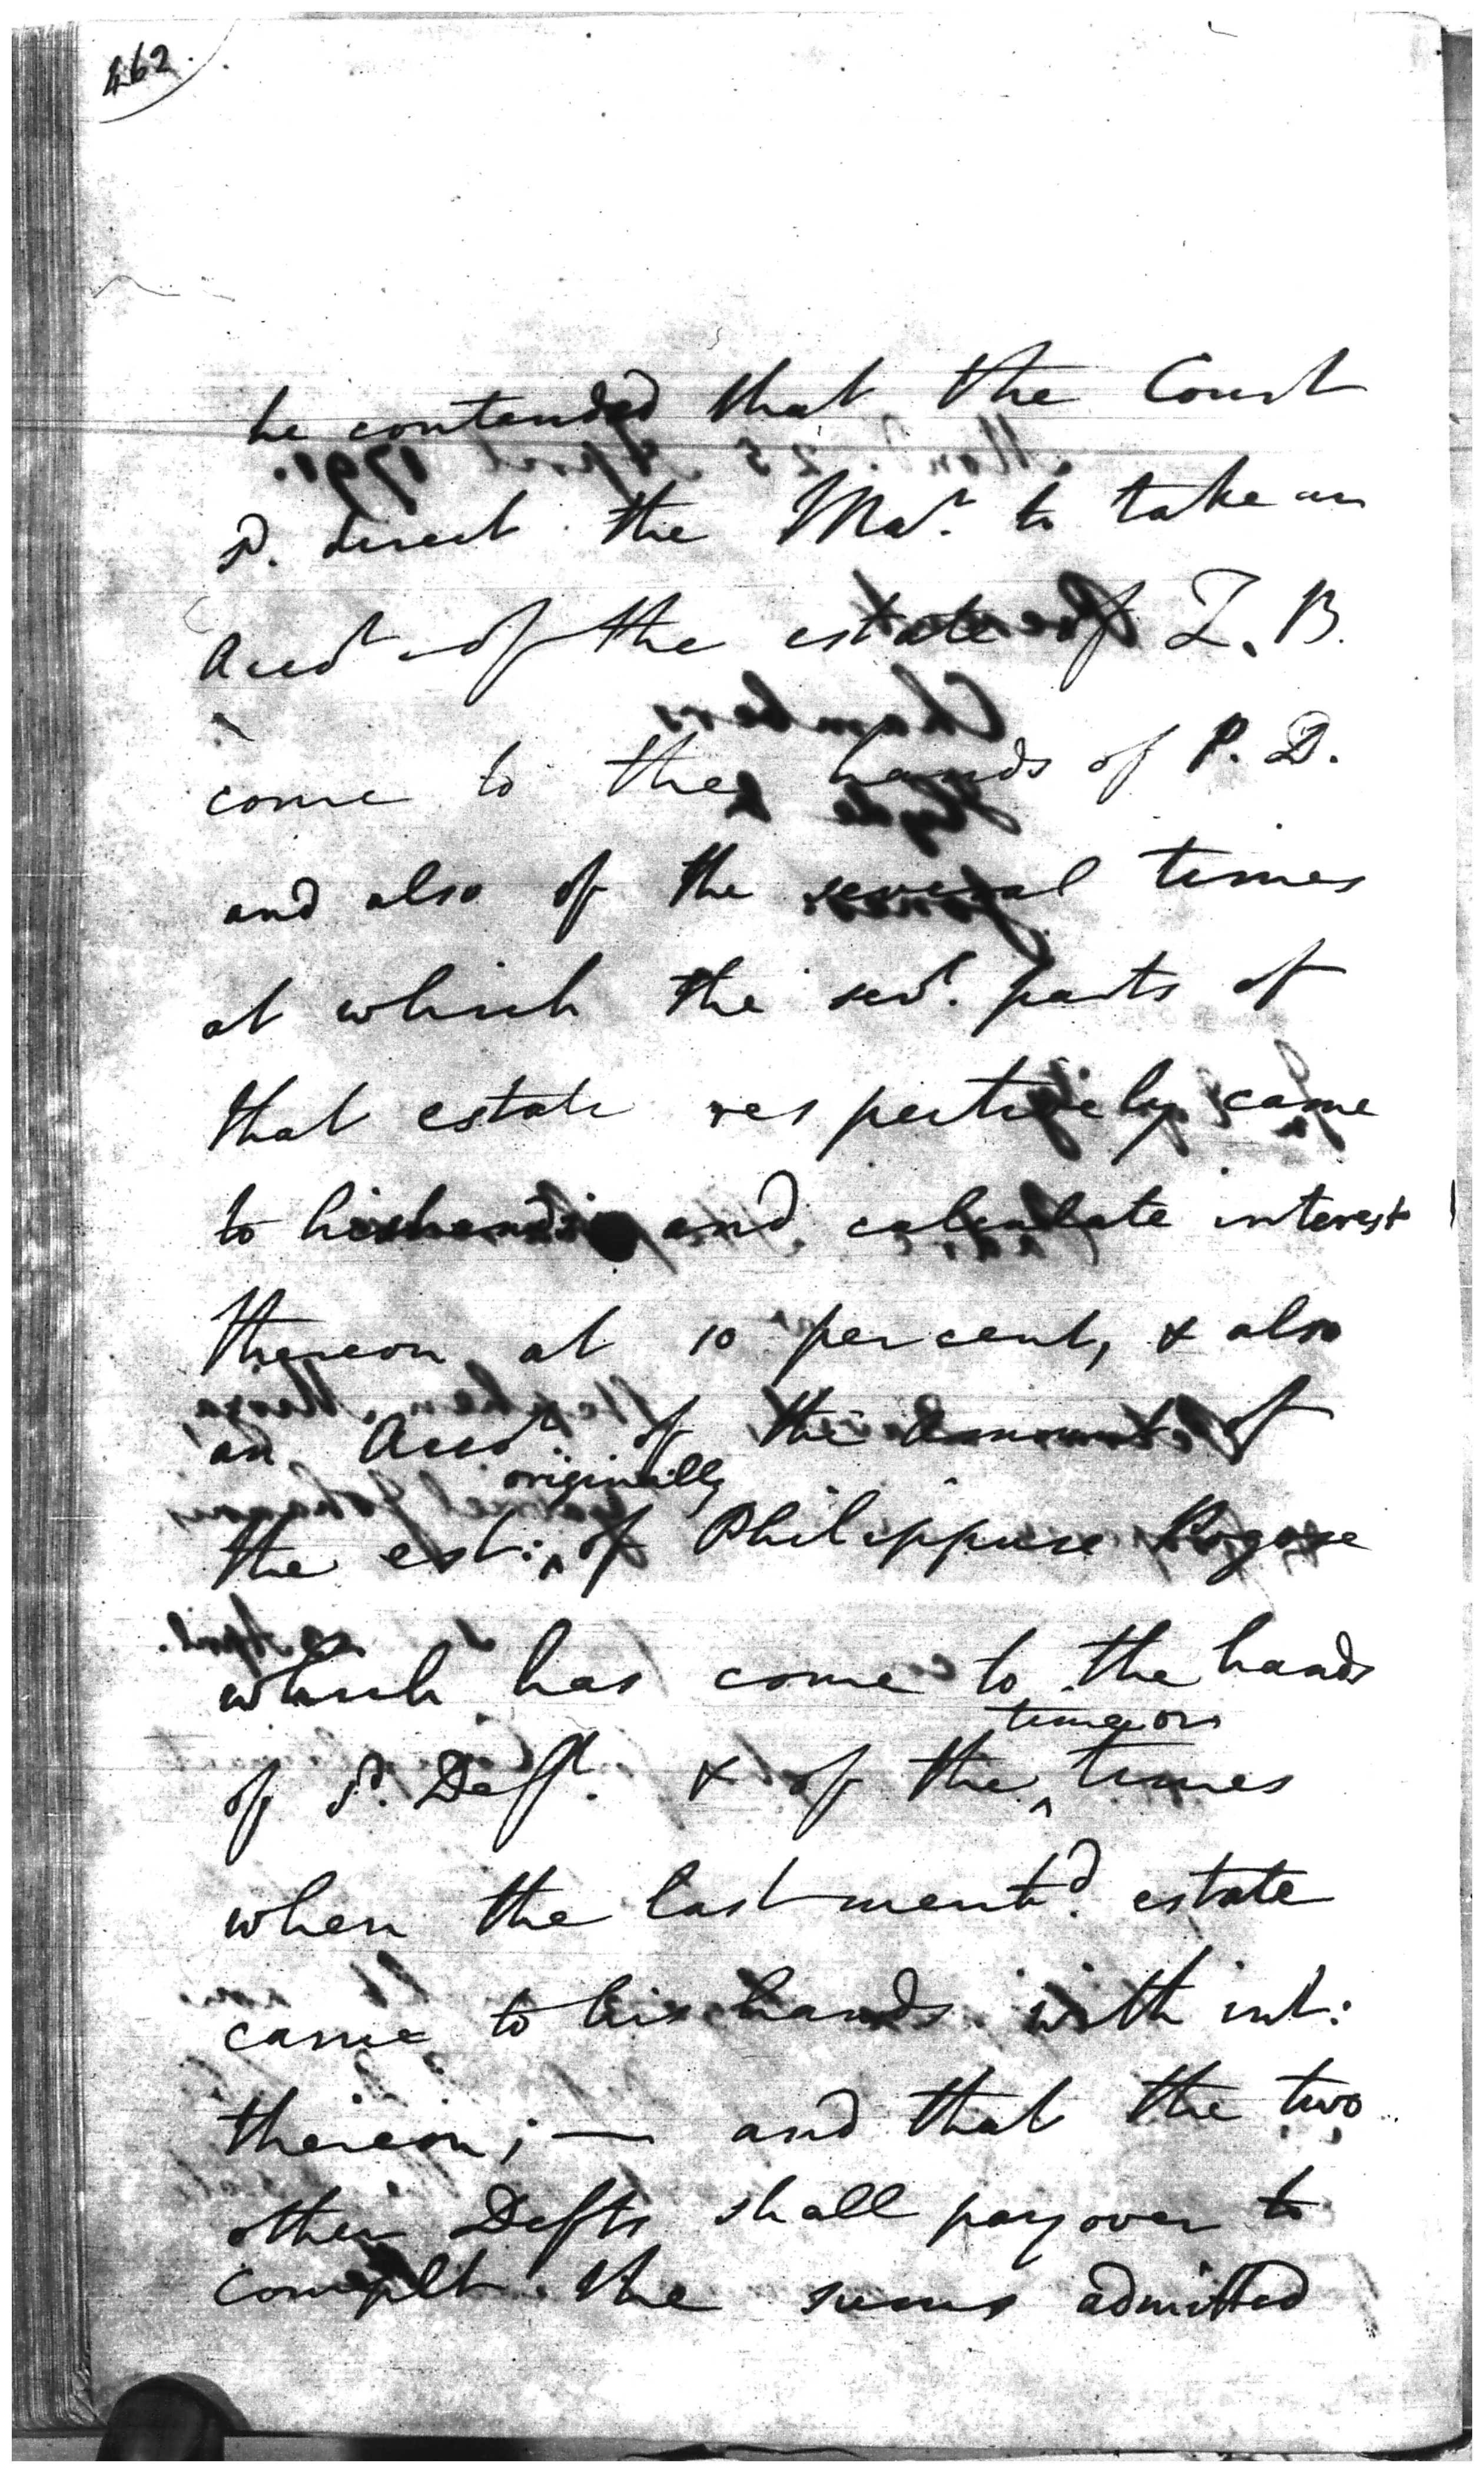 462.
he contended that the Court
sd. direct the Mar. to take an
Acct of the estate of Z. B.
come to the hands of P. D.
and also of the several times
at which the sevl. parts of
that estate respectively came
to his hands and calculate interest
thereon at 10 per cent, & also
an Acct of the amount of
originally
the est: ^ of Philippuse Pogose
which has come to the hands
time or
of sd. Deft. & of the ^ times
when the last mentd. estate
came to his hands with int:
thereon; — and that the two
other Defts shall pay over to
complt the sums admitted